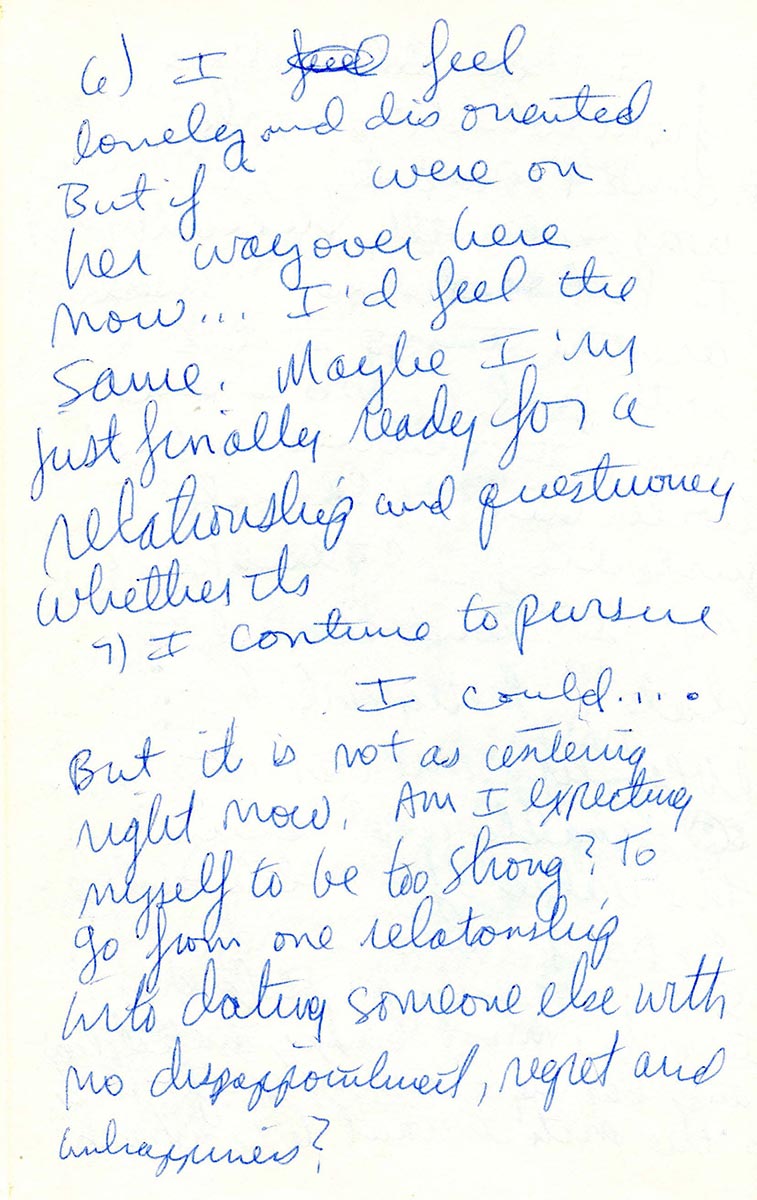 6) I feel
lonely and disoriented.
But if were on
her way over here
now... I'd feel the
same. Maybe I'm
just finally ready for a
relationship and
whether its
7) I continue to pursue
I could....
But it is not as centering
right now. Am I expecting
myself to be too strong? To
go from one relationship
into dating someone else with
no disappointment, regret and
unhappiness?